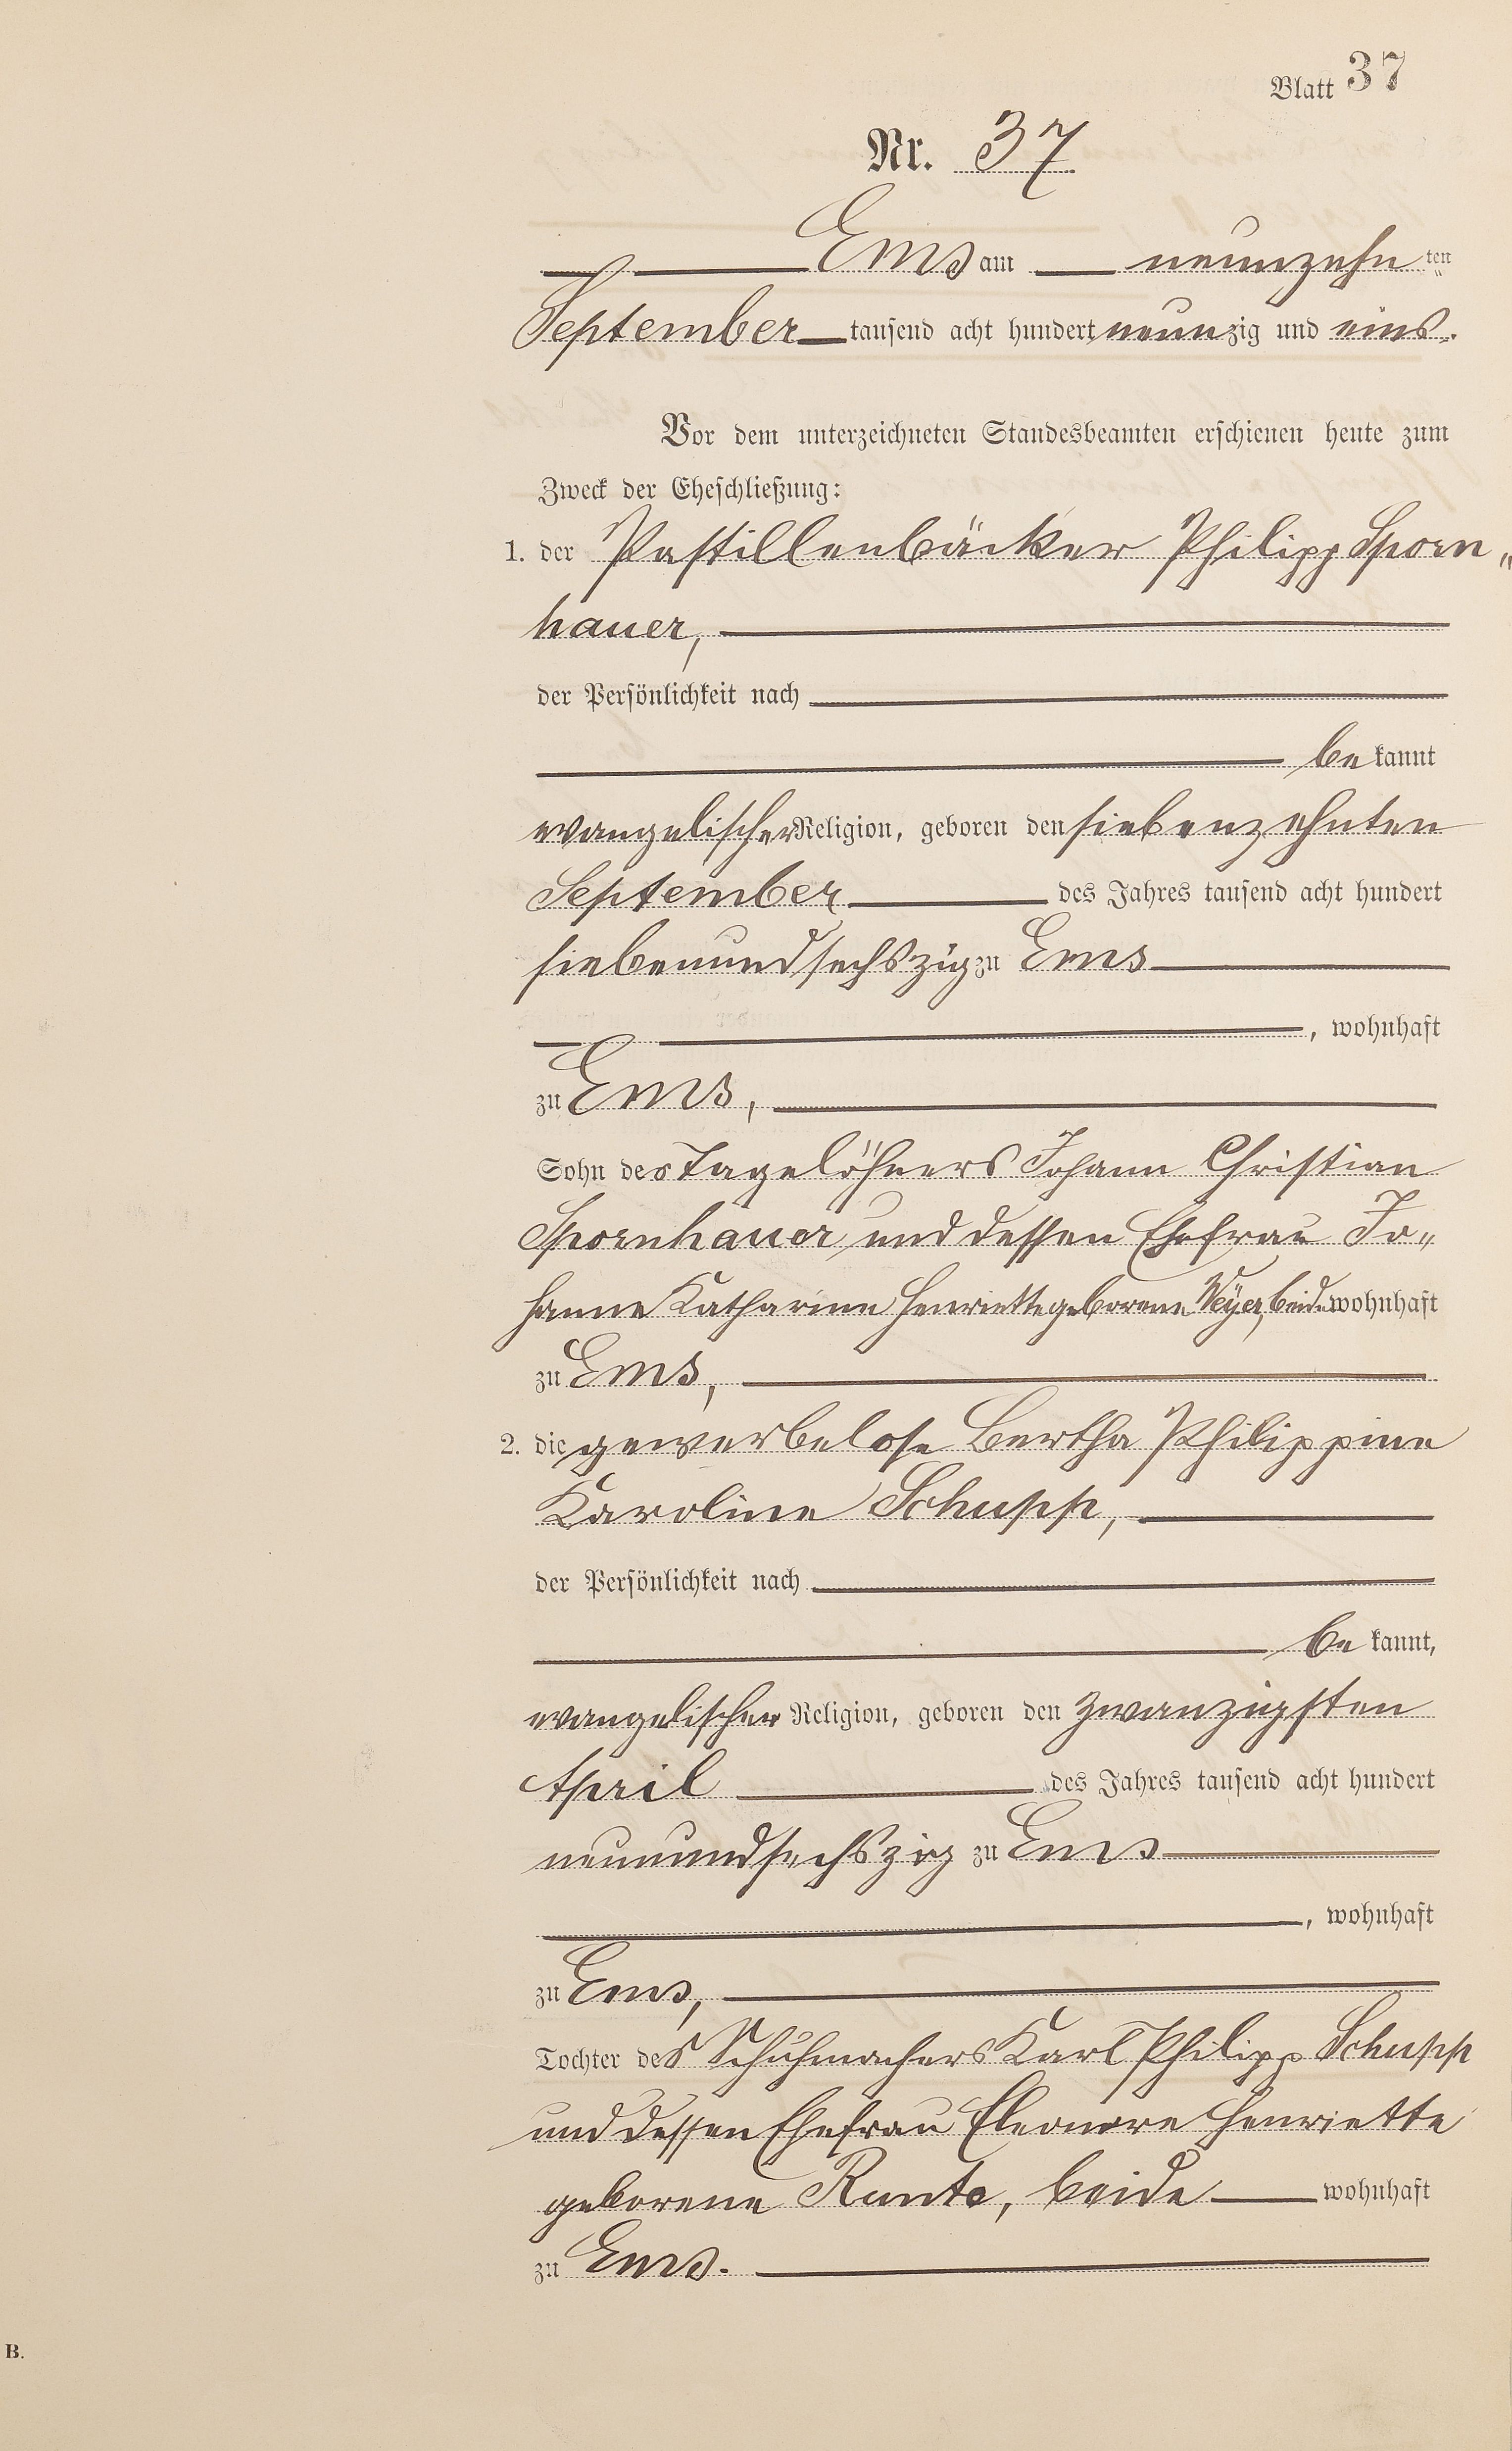 Blatt 37
Nr. 37
Ems am neunzehn ten
September tausend acht hundert neunzig und eins.
Vor dem unterzeichneten Standesbeamten erschienen heute zum
Zweck der Eheschließung:
1. der Pastillenbäcker Philipp Sporn„
hauer,
der Persönlichkeit nach
be kannt
evangelischer Religion, geboren den siebenzehnten
September des Jahres tausend acht hundert
siebenundsechszig zu Ems
, wohnhaft
zu Ems,
Sohn des Tagelöhners Johann Christian
Spornhauer und dessen Ehefrau Jo„
hanne Katharine Henriette geborene Weyer, beide wohnhaft
zu Ems,
2. die gewerbelose Bertha Philippine
Karoline Schupp,
der Persönlichkeit nach
be kannt,
evangelischer Religion, geboren den zwanzigsten
April des Jahres tausend acht hundert
neunundsechszig zu Ems
, wohnhaft
zu Ems,
Tochter des Schuhmachers Karl Philipp Schupp
und dessen Ehefrau Eleonore Henriette
geborene Runte, beide wohnhaft
zu Ems.
B.